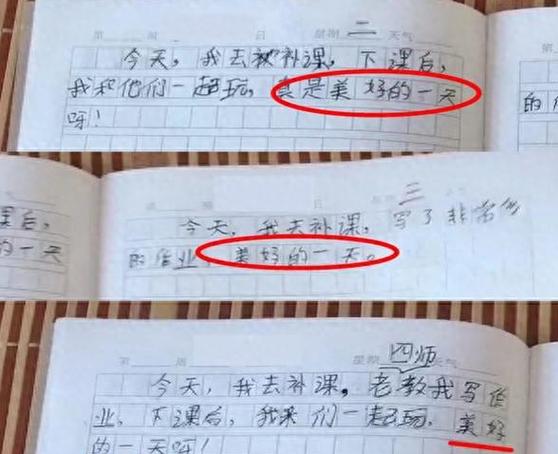 第 周 日 星期 二 天气
今天,我去被补课,下课后,
我和他们一起玩,真是美好的一天
呀!
的作
课后,
的一天
三
今天,我去补课,写了非常多
的作业,美好的一天。
第 周 星期 四 天气
师
今天,我去补课,老教我写作
业,下课后,我来们一起玩,美好
的一天呀!